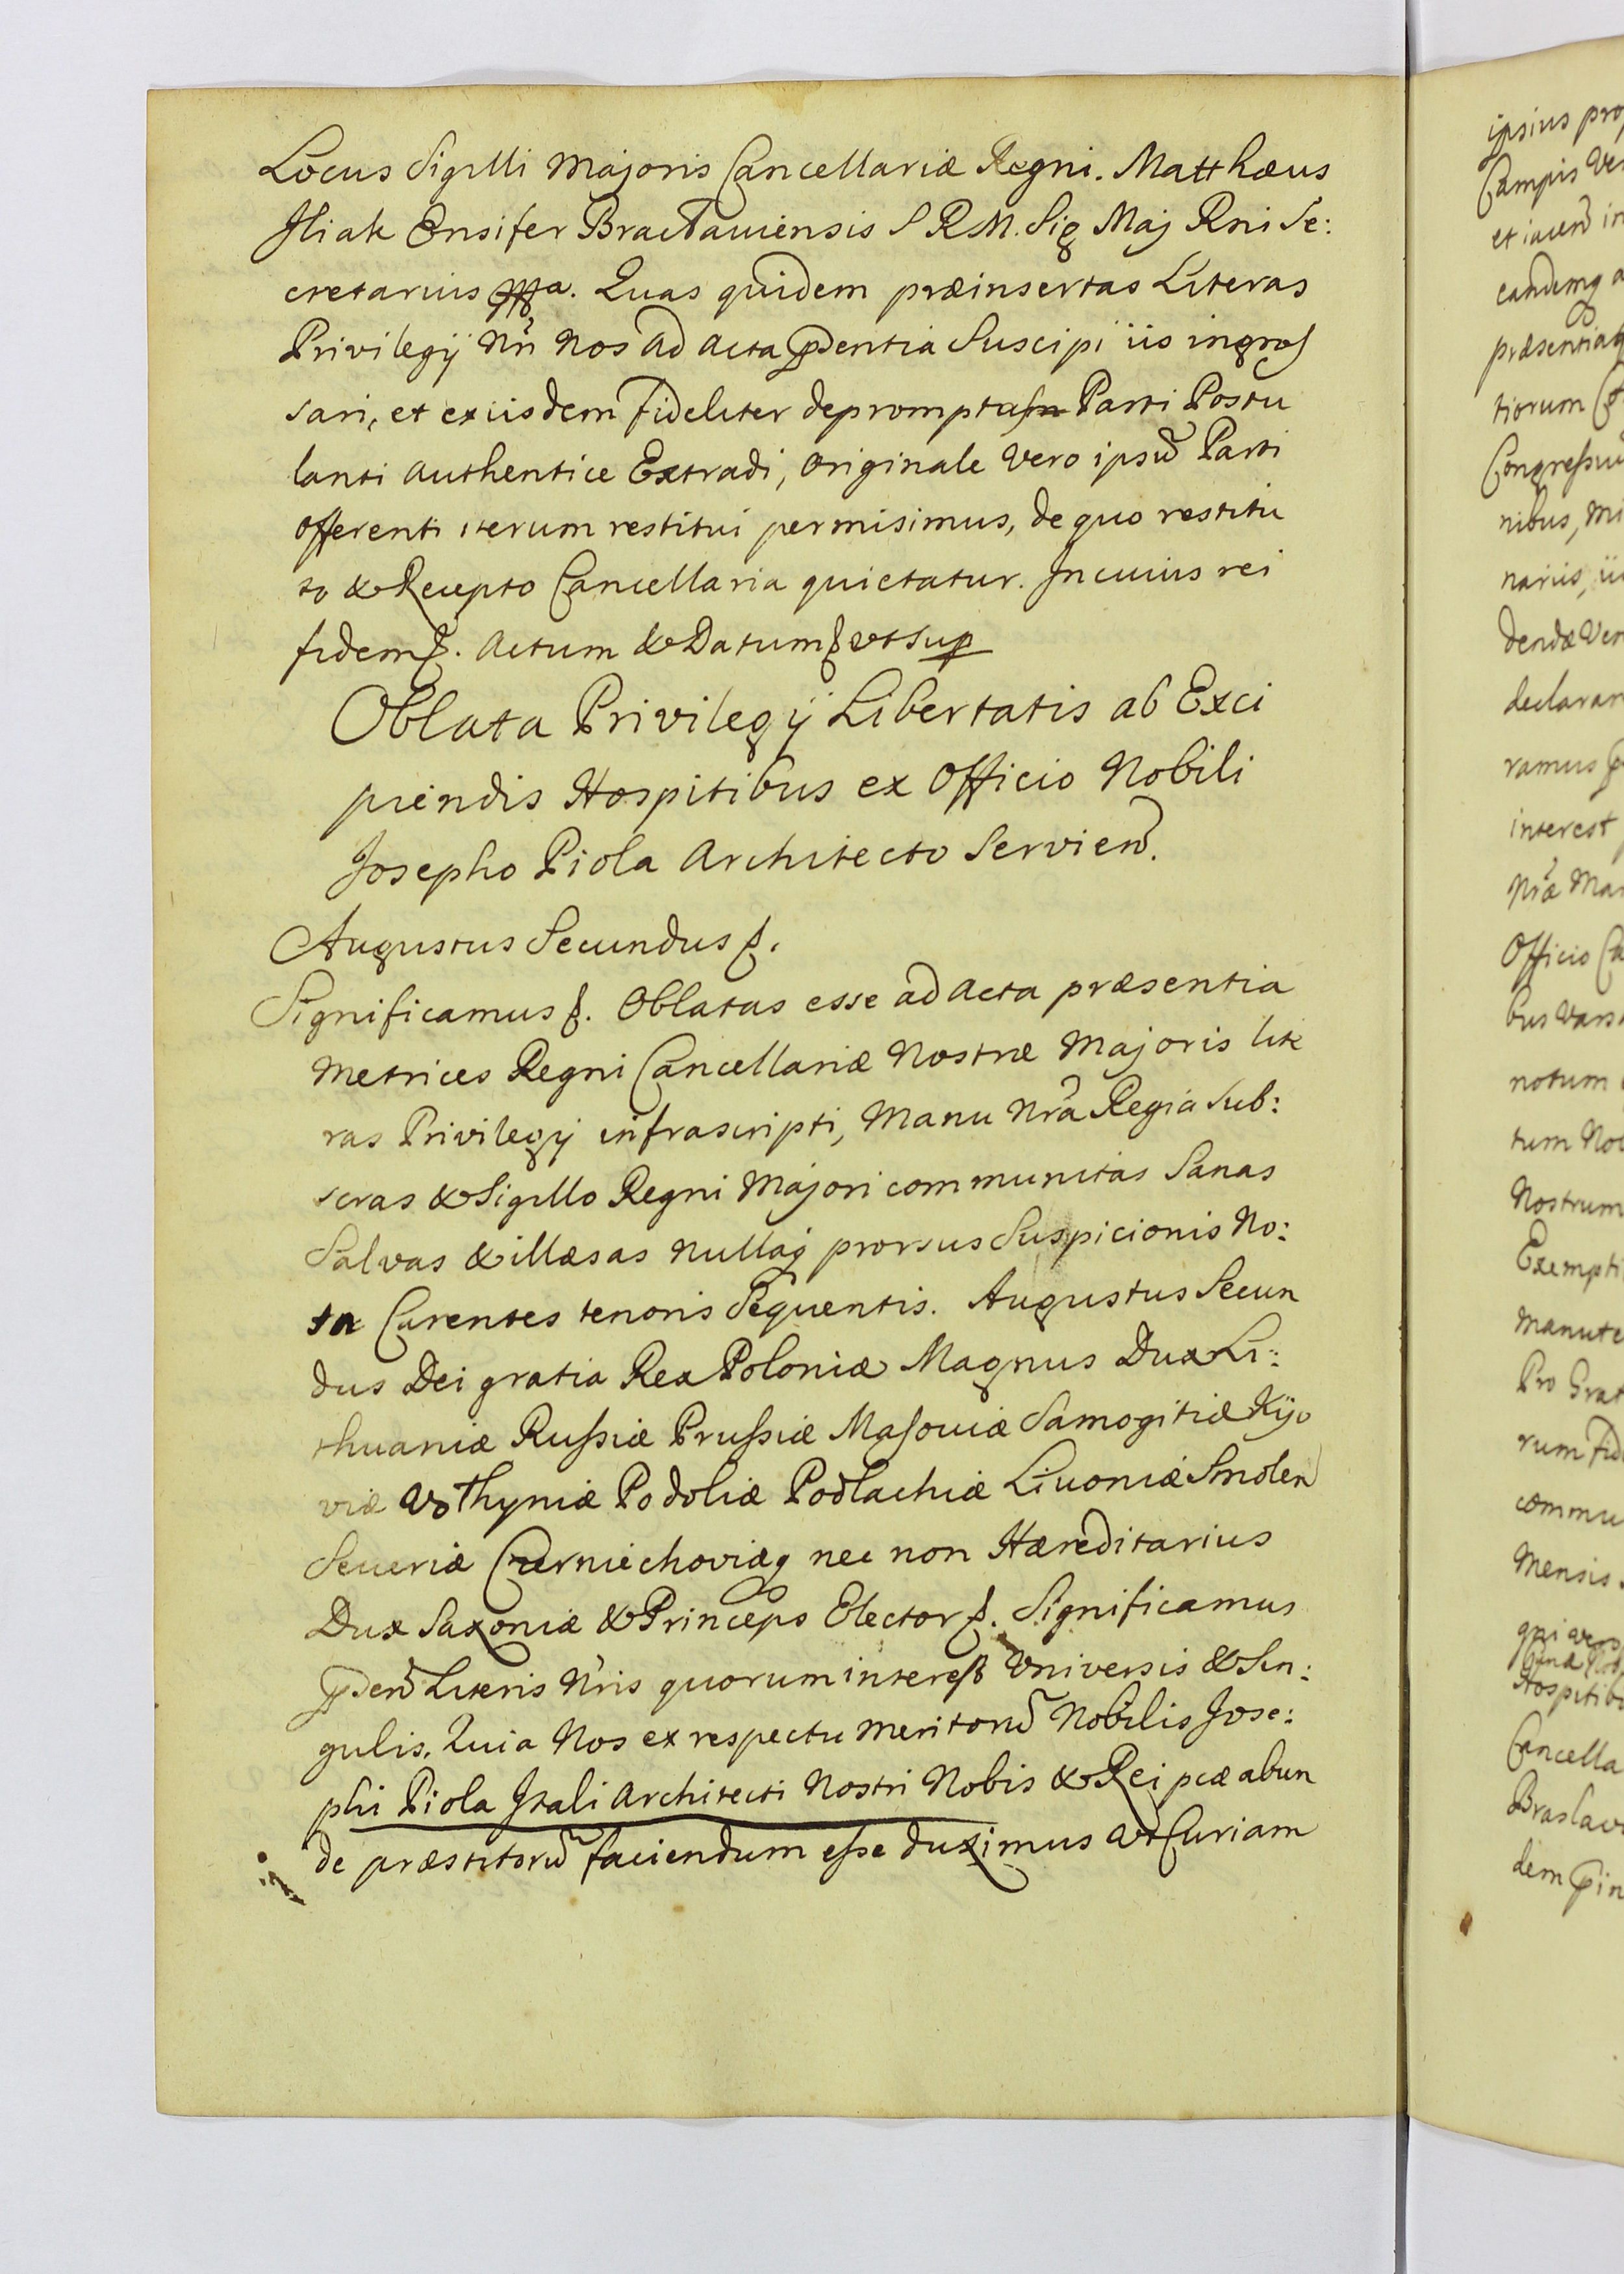 Locus Sigilli Majoris Cancellariæ Regni. Matthæus
Iliak Ensifer Braclauiensis S R M. Sig Maj Rni Se:
cretarius mpa. Quas quidem præinsertas Literas
Privilegij Nri Nos ad Acta pñdentia Suscipi iis ingros
sari, et ex iisdem fideliter depromptas Parti Postu
lanti Authentice Extradi, Originale vero ipsũ Parti
Offerenti iterum restitui permisimus, de quo restitu
to & Recepto Cancellaria quietatur. In cuius rei
fidem &. Actum & Datum & ut sup
Oblata Privilegij Libertatis ab Exci
piendis Hospitibus ex Officio Nobili
Josepho Piola Architecto Servieñ.
Augustus Secundus &.
Significamus &. Oblatas esse ad Acta præsentia
Metrices Regni Cancellariæ Nostræ Majoris lit
ras Privilegij infrascripti, Manu Nrã Regia Sub:
scras & Sigillo Regni Majori communitas Sanas
Salvas & illæsas Nullaq prorsus Suspicionis No:
ta Carentes tenoris Sequentis. Augustus Secun
dus Dei gratia Rex Poloniæ Magnus Dux Li:
thuaniæ Russiæ Prussiæ Masoviæ Samogitiæ Kijo
viæ Volhyniæ Podoliæ Podlachiæ Livoniæ Smolen
Seueriæ Czerniechoviæq nec non Hæreditarius
Dux Saxoniæ & Princeps Elector &. Significamus
pñdeñ Literis Nris quorum interest Vniversis & Sin:
gulis. Quia Nos ex respectu meritorũ Nobilis Jose:
phi Piola Itali Architecti Nostri Nobis & Rei pcæ abun
de præstitorũ faciendum esse duximus Vt Curiam
ipsius pro
Campis
et iaceñ in
eandemq a
præsentia
tiorum
Congressu
nibus,
nariis,
dendæ
declarar
ramus
interest
Nræ
Officio
bus
notum
tum
Nostrum
Exempti
Manute
Pro Grat
rum
commu
Mensis
qui
Hospitib
Cancella
Braslav
dem